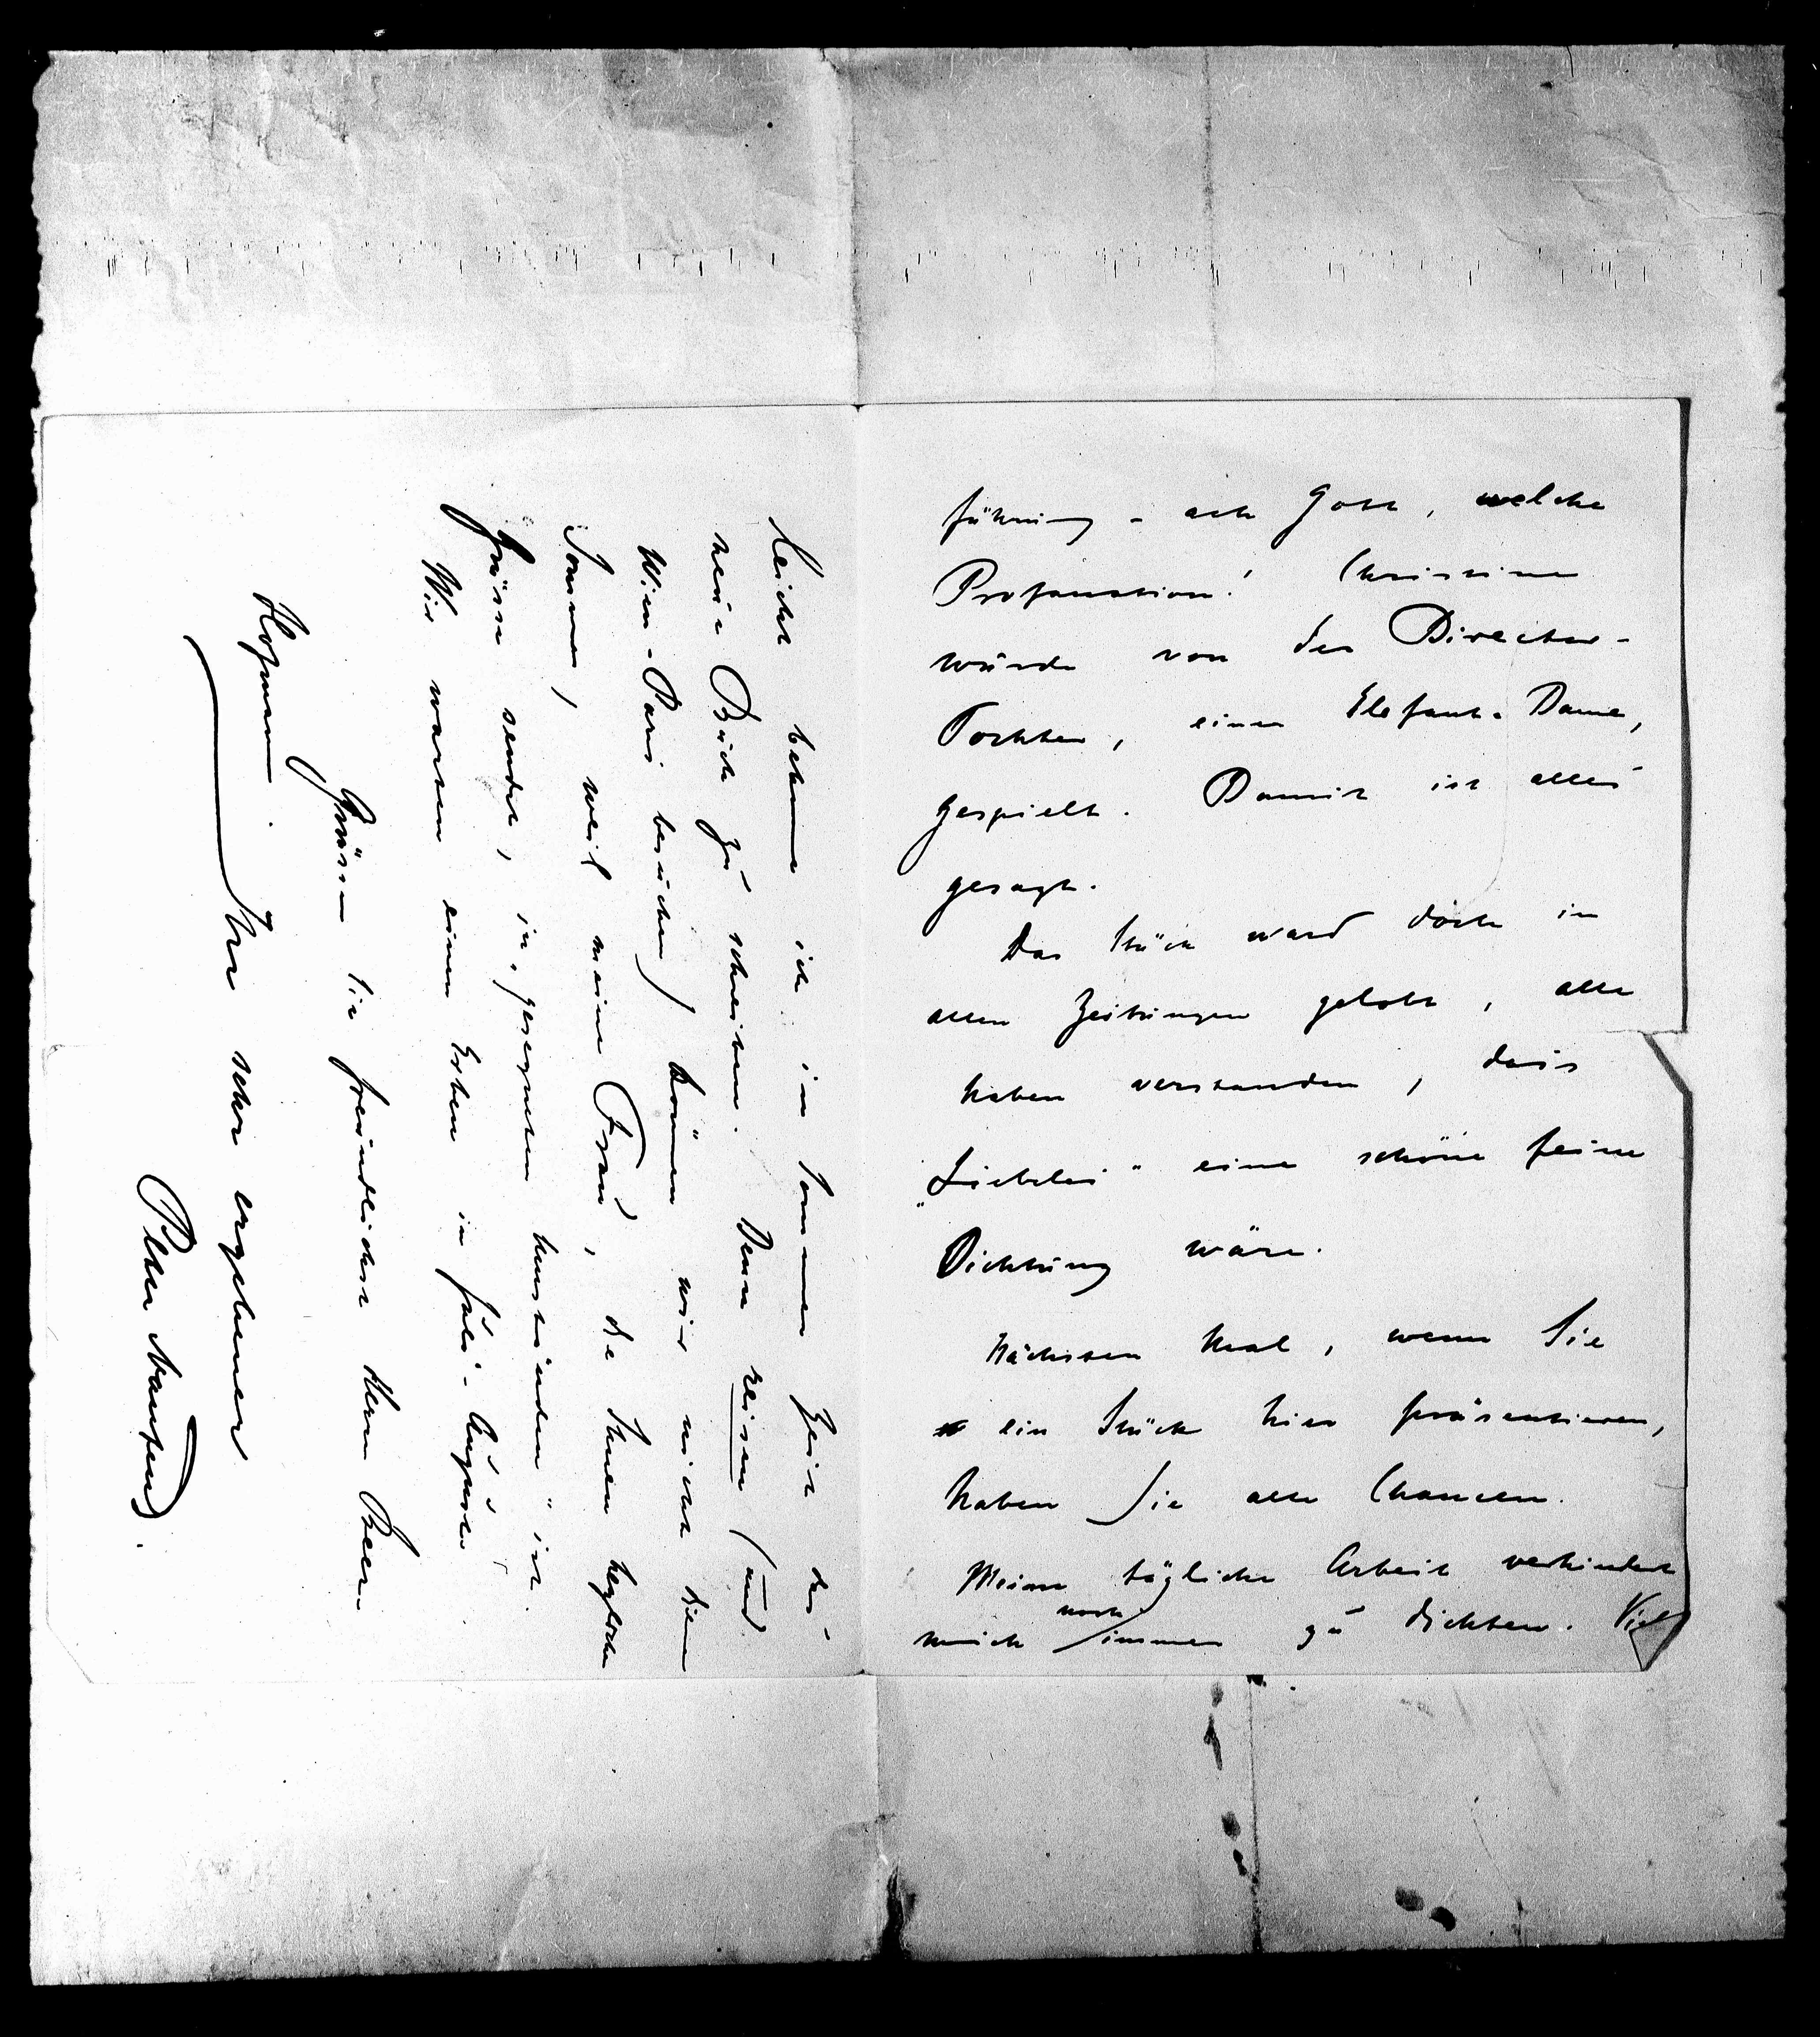 führung – ach Gott, welche
Profanation! Christine
wurde von der Director-
Tochter, einer Elefant-Dame,
gespielt. Damit ist alles
gesagt.
Das Stück ward doch in
allen Zeitungen gelobt, alle
haben verstanden, dass
„Liebelei" eine schöne feine
Dichtung wäre.
Nächsten Mal, wenn Sie
ein Stück hier präsentieren,
haben Sie alle Chancen.
Meine tägliche Arbeit verhindert
mich noch immer zu dichten. Viel
leicht bekomme ich im Sommer Zeit das
neue Buch zu schreiben. Denn reisen (und
Wien-Paris besuchen) können wir nicht diesen
Sommer, weil meine Frau, die Ihnen herzliche
Grüsse sendet, in „gesegneten Umständen" ist.
Wir warten einen Erben in Juli-August
Grüssen Sie freundlichst Herrn Beer-
Hofmann.
Ihr sehr ergebener
Peter Nansen.